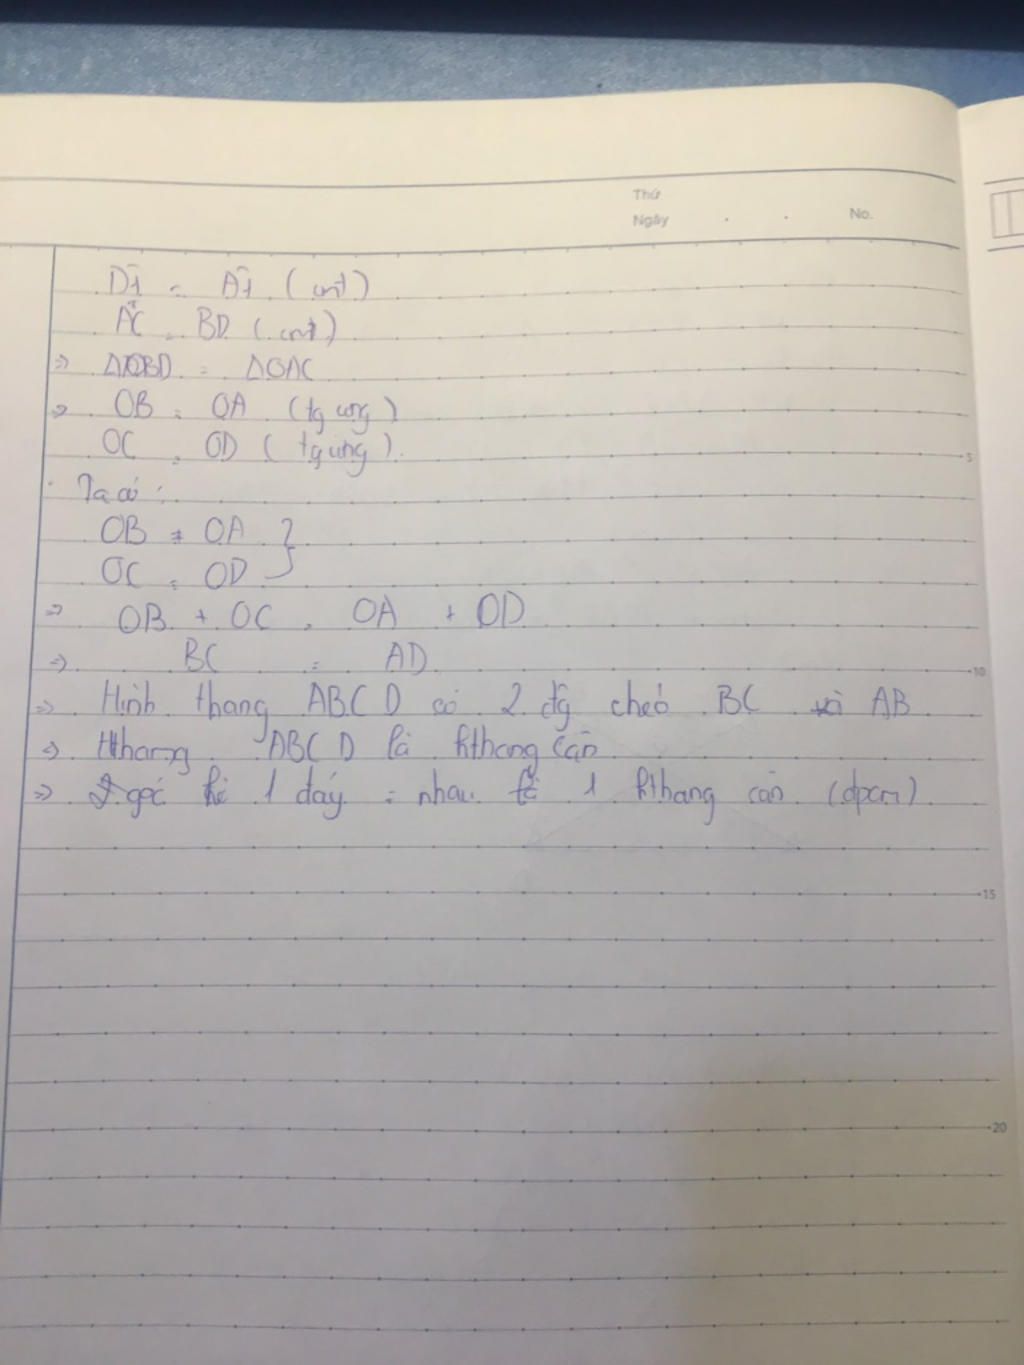 Thứ
Ngày . . No.
D1 = A1 (cmt)
AC = BD (cmt)
=> ΔOBD = ΔOAC
=> OB = OA (tg ứng)
OC = OD (tg ứng).
Ta có:
OB = OA }
OC = OD
5
=> OB + OC = OA + OD
=> BC = AD
10
=> Hình thang ABCD có 2 đg chéo BC và AB
=> Hthang ABCD là hthang cân
=> góc kề 1 đáy = nhau 1 hthang cân (đpcm)
15
20